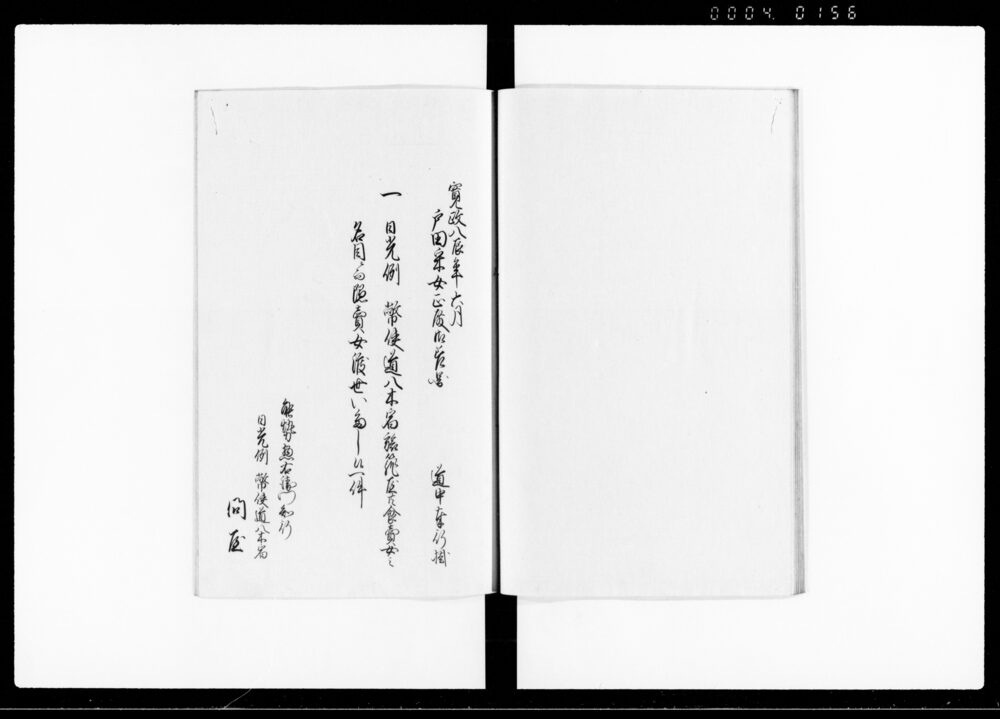 0004 0156
寛政八辰年六月
戸田采女正殿御差図
道中奉行掛
一 日光例 幣使道八木宿旅籠屋共飯売女之
名目ニ而隠売女渡世いたし候一件
能勢惣右衛門知行
日光例 幣使道八木宿
問屋